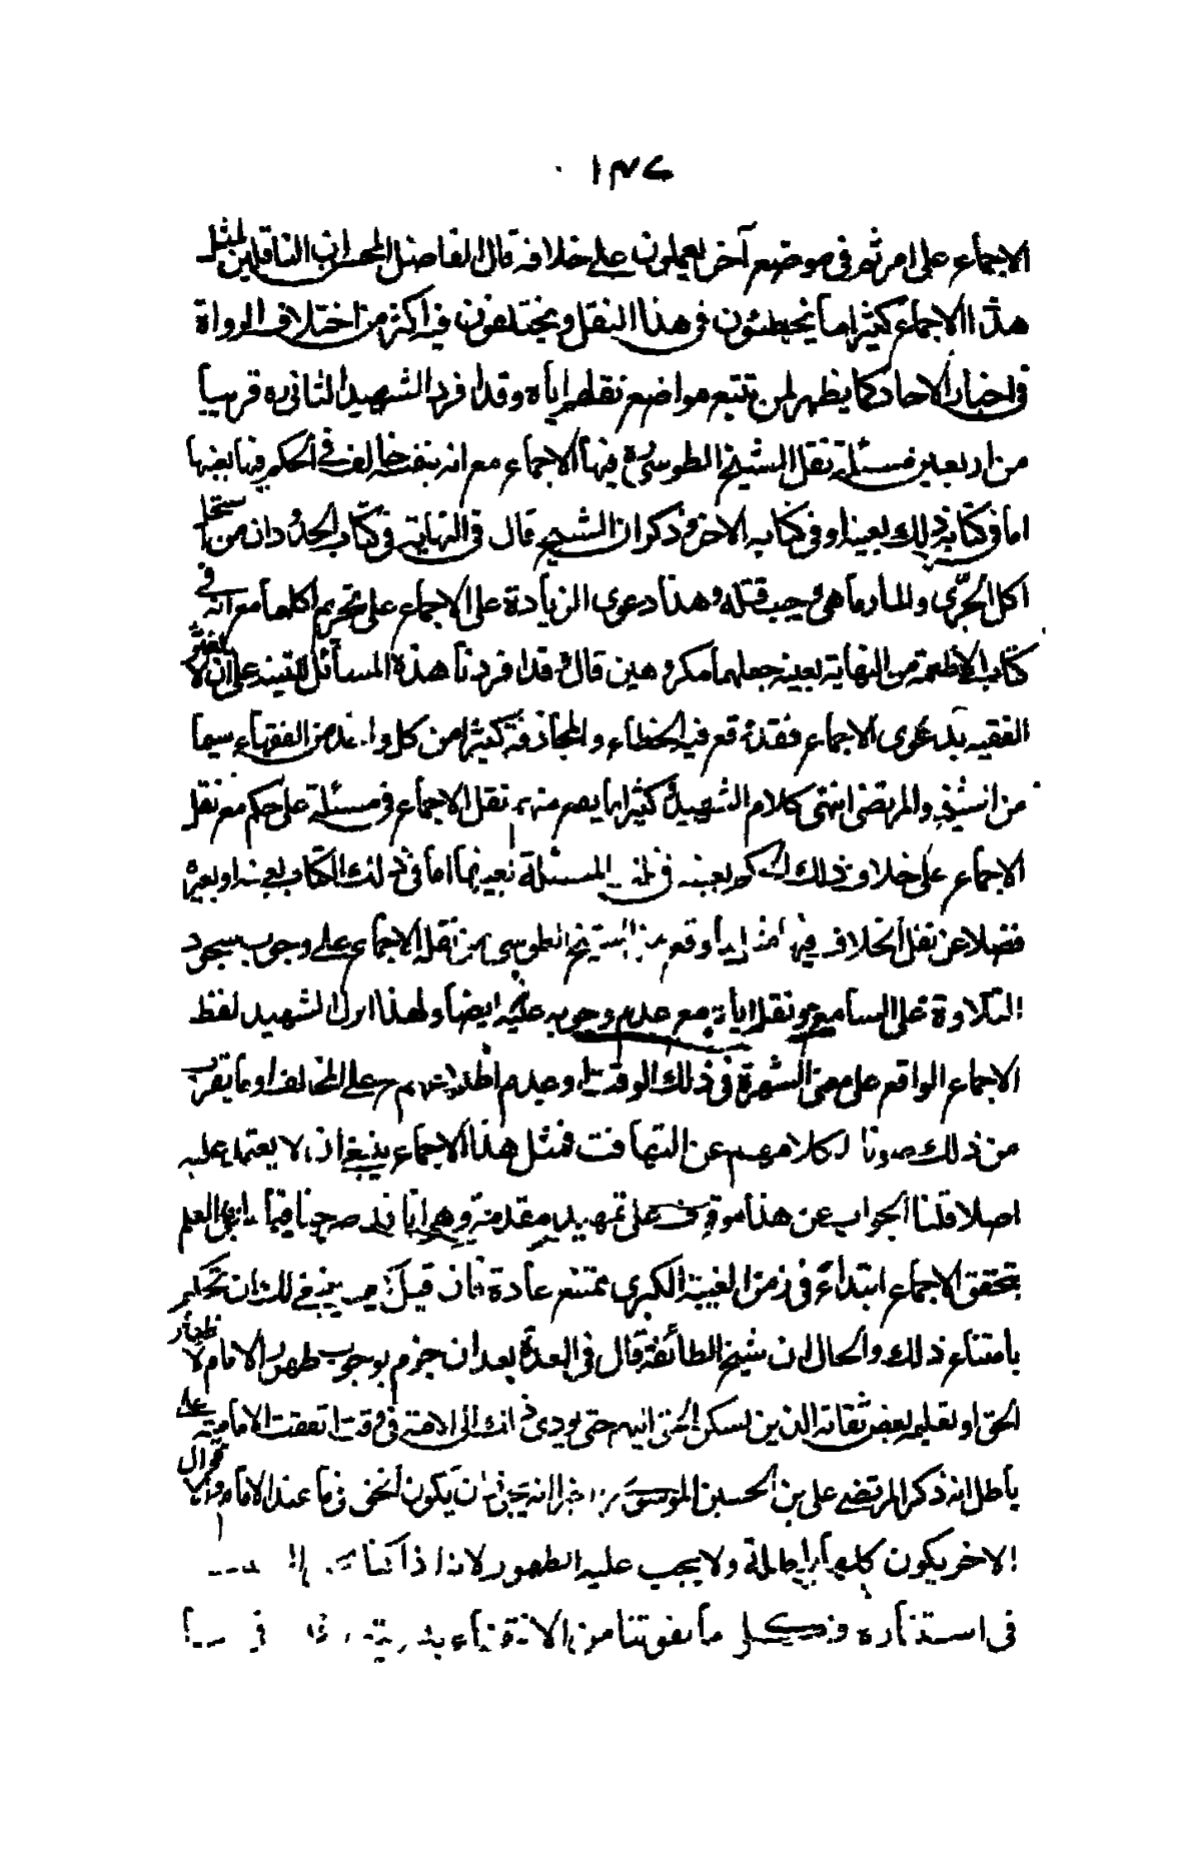 ١٣٧
الاجماع على امر ثم فى موضع آخر يعملون على خلافه قال الفاضل المحسر ان الناقلين لمثل
هذا الاجماع كثيرا ما يخطئون فى هذا النقل ويختلفون فيه اكثر من اختلاف الرواة
فى اخبار الاحاد كما يظهر لمن تتبع مواضع نقلهم اياه وقد افرد الشهيد الثانى ره قريبا
من اربعين مسئلة نقل الشيخ الطوسى ره فيها الاجماع مع انه بنفسه خالف فى الحكم فيها بعينها
اما فى كتابه ذلك بعينه او فى كتابه الاخر وذكر ان الشيخ قال فى النهاية فى كتاب الحدود ان من استحل
اكل الجرّى والمارماهى وجب قتله وهذا دعوى الزيادة على الاجماع على تحريم اكلهما مع انه فى
كتاب الاطعمة من النهاية بعينه جعلهما مكروهين قال وقد افردنا هذه المسائل للتنبيه على ان لا يغتر
الفقيه بدعوى الاجماع فقد وقع فيه الخطاء والمجازفة كثيرا من كل واحد من الفقهاء سيما
من الشيخ والمرتضى انتهى كلام الشهيد وكثيرا ما يصر منهم نقل الاجماع فى مسئلة على حكم مع نقل
الاجماع على خلاف ذلك الحكم بعينه فى تلك المسئلة بعينها اما فى ذلك الكتاب بعينه او بغيره
فضلا عن نقل الخلاف فيها وقع من الشيخ الطوسى من نقله الاجماع على وجوب سجود
التلاوة على السامع ونقله اياه مع عدم وجوبه عليه ايضا ولهذا اول الشهيد لفظ
الاجماع الواقع على معنى الشهرة فى ذلك الوقت او عدم اطلاعهم على المخالف او ما يقرب
من ذلك صونا لكلامهم عن التهافت فمثل هذا الاجماع ينبغى ان لا يعتمد عليه
اصلا قلنا الجواب عن هذا موقوف على تمهيد مقدمة وهى انا قد صرحنا فيما ان العلم
بتحقق الاجماع ابتداء فى زمن الغيبة الكبرى ممتنع عادة فان قيل لك ان تحكم
بامتناع ذلك والحال ان شيخ الطائفة قال فى العدة بعد ان جزم بوجوب ظهور الامام لاظهار
الحق او تعليمه بعض ثقاته الذين يسكن اليهم حتى يودى ذلك الى الامة فى وقت اتفقت الامامية على
باطل انه ذكر المرتضى على بن الحسين الموسوى اخيرا انه يجوز ان يكون الحق فيما عند الامام والاقوال
الاخر يكون كلها باطلة ولا يجب عليه الظهور لانا اذا كنا
فى استتاره فكل ما يفوتنا من الانتفاع به